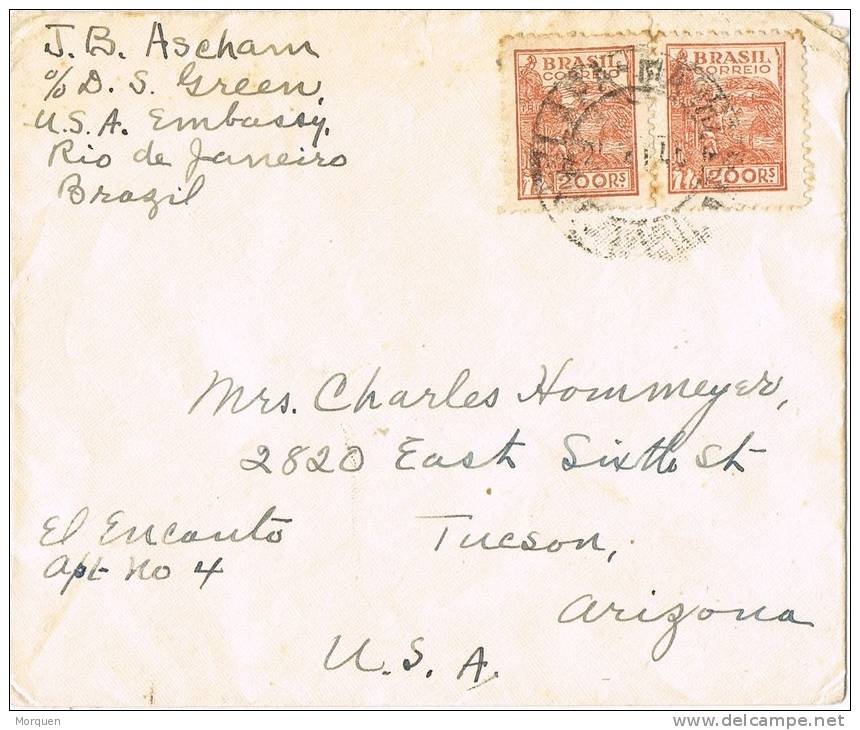 J. B. Ascham
% D. S. Green,
U.S.A. Embassy,
Rio de Janeiro
Brazil
BRASIL
CORREIO
200 RS.
BRASIL
CORREIO
200 RS.
Mrs. Charles Hommeyer,
2820 East Sixth St
El Encanto
Apt No 4
Tucson,
Arizona
U.S.A.
Morquen
delcampe.net